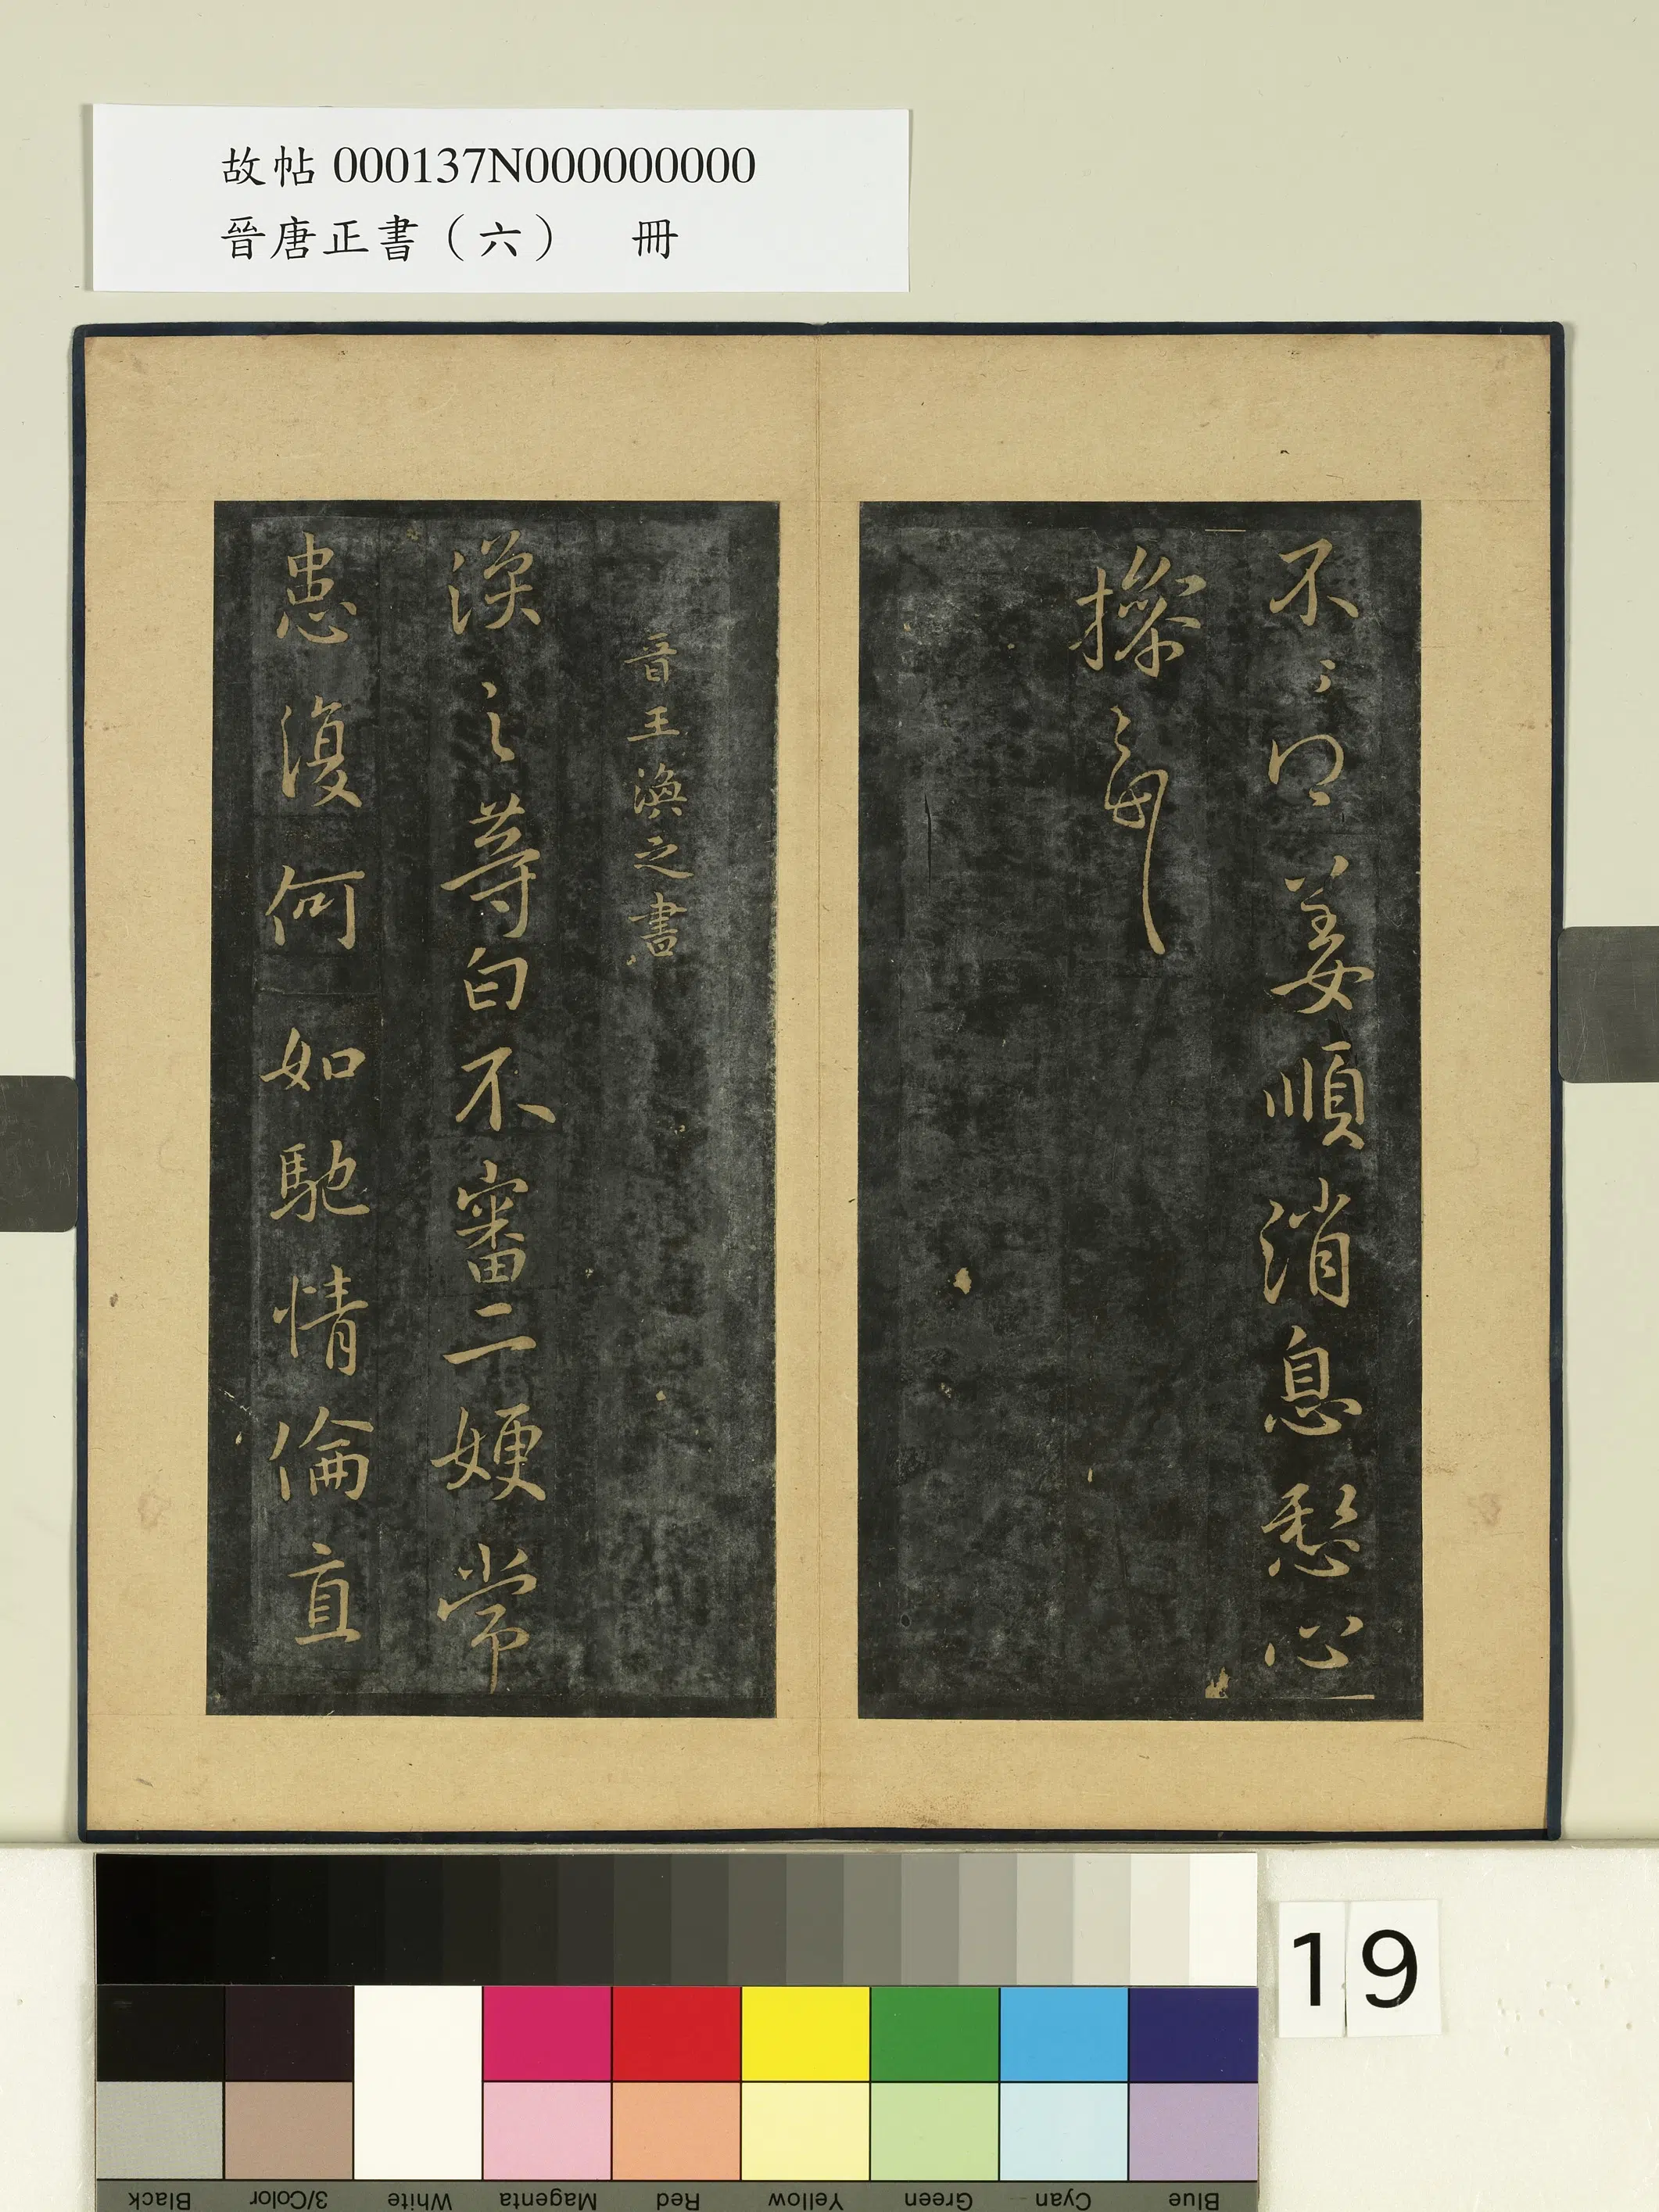 故帖000137N000000000
晉唐正書（六） 冊
不〻可〻姜順消息愁心
操之每
晉王渙之書
渙之等白不審二嫂常
患復何如馳情倫直
19
Black
3/Color
White
Magenta
Red
Yellow
Green
Cyan
Blue